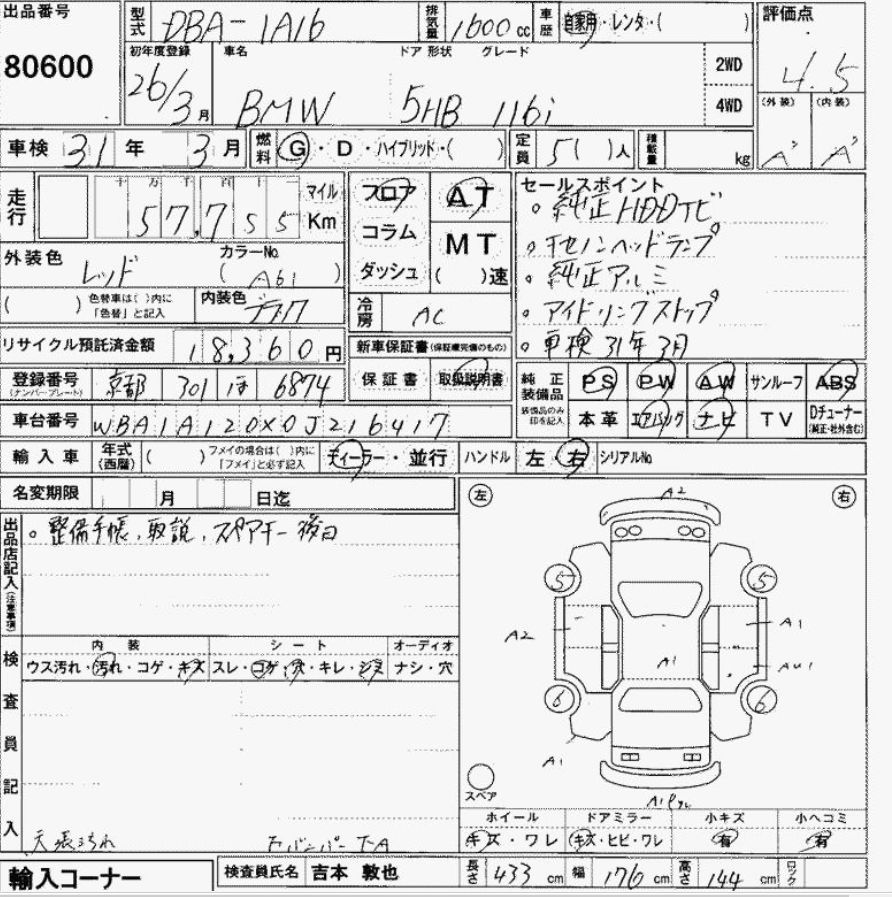 出品番号 型式 DBA-1A16 排気量 1600 cc 車歴 自家用・レンタ・( ) 評価点
80600 初年度登録 車名 ドア 形状 グレード 4.5
26/3 月 BMW 5HB 116i 2WD 4WD (外装) (内装)
車検 31 年 3 月 燃料 G・D・ハイブリッド・( ) 定員 5( )人 積載量 kg A' A'
走行 十万千百十一 マイル フロア AT セールスポイント
57,755 Km コラム MT 。純正HDDナビ
外装色 カラーNo. ダッシュ ( )速 。キセノンヘッドランプ
レッド ( A61 ) 。純正アルミ
( ) 色替車は( )内に「色替」と記入 内装色 ブラック 冷房 AC 。アイドリングストップ
リサイクル預託済金額 18,360 円 新車保証書(保証欄完備のもの) 。車検 31年3月
登録番号 (ナンバープレート) 京都 301 ほ 6874 保証書 取扱説明書 純正装備品 PS PW AW サンルーフ ABS
車台番号 WBA1A120X0J216417 装備品のみ印を記入 本革 エアバッグ ナビ TV Dチューナー (純正・社外含む)
輸入車 年式(西暦) ( ) フメイの場合は( )内に「フメイ」と必ず記入 ディーラー・並行 ハンドル 左 右 シリアルNo.
名変期限 月 日迄 左 右
A2
出品店記入(注意事項) 。整備手帳、取説、スペアキー後日
5 5
A2 A1
A1 AU1
検査員記入 内装 シート オーディオ
ウス汚れ・汚れ・コゲ・キズ スレ・コゲ・穴・キレ・シミ ナシ・穴
6 6
A1
スペア
A1
ホイール ドアミラー 小キズ 小ヘコミ
キズ・ワレ キズ・ヒビ・ワレ 有 有
天張汚れ
輸入コーナー 検査員氏名 吉本 敦也 長さ 433 cm 幅 176 cm 高さ 144 cm ロック